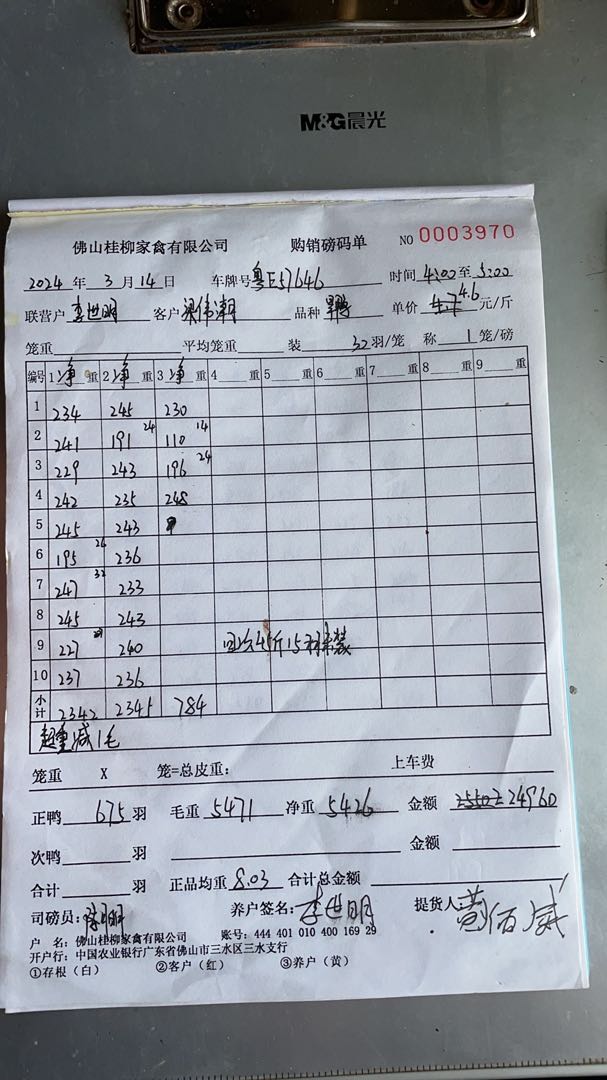 M&G晨光
佛山桂柳家禽有限公司 购销磅码单 NO 0003970
2024 年 3 月 14 日 车牌号 粤E57646 时间 4:00 至 5:00
联营户 李世明 客户 梁伟潮 品种 单价 4.6 元/斤
笼重 平均笼重 装 32 羽/笼 称 1 笼/磅
编号 1 净 重 2 净 重 3 净 重 4 重 5 重 6 重 7 重 8 重 9 重
1 234 245 230
2 241 191 24 110 14
3 229 243 196 24
4 242 235 248
5 245 243
6 195 26 236
7 247 32 233
8 245 243
9 227 240 45斤15
10 237 236
小计 2342 2345 784
超重减1毛
笼重 X 笼=总皮重: 上车费
正鸭 675 羽 毛重 5471 净重 5426 金额 25502 24960
次鸭 羽 金额
合计 羽 正品均重 8.03 合计总金额
司磅员: 养户签名: 李世明 提货人 黄佰威
户 名: 佛山桂柳家禽有限公司 账号: 444 401 010 400 169 29
开户行: 中国农业银行广东省佛山市三水区三水支行
①存根(白) ②客户(红) ③养户(黄)